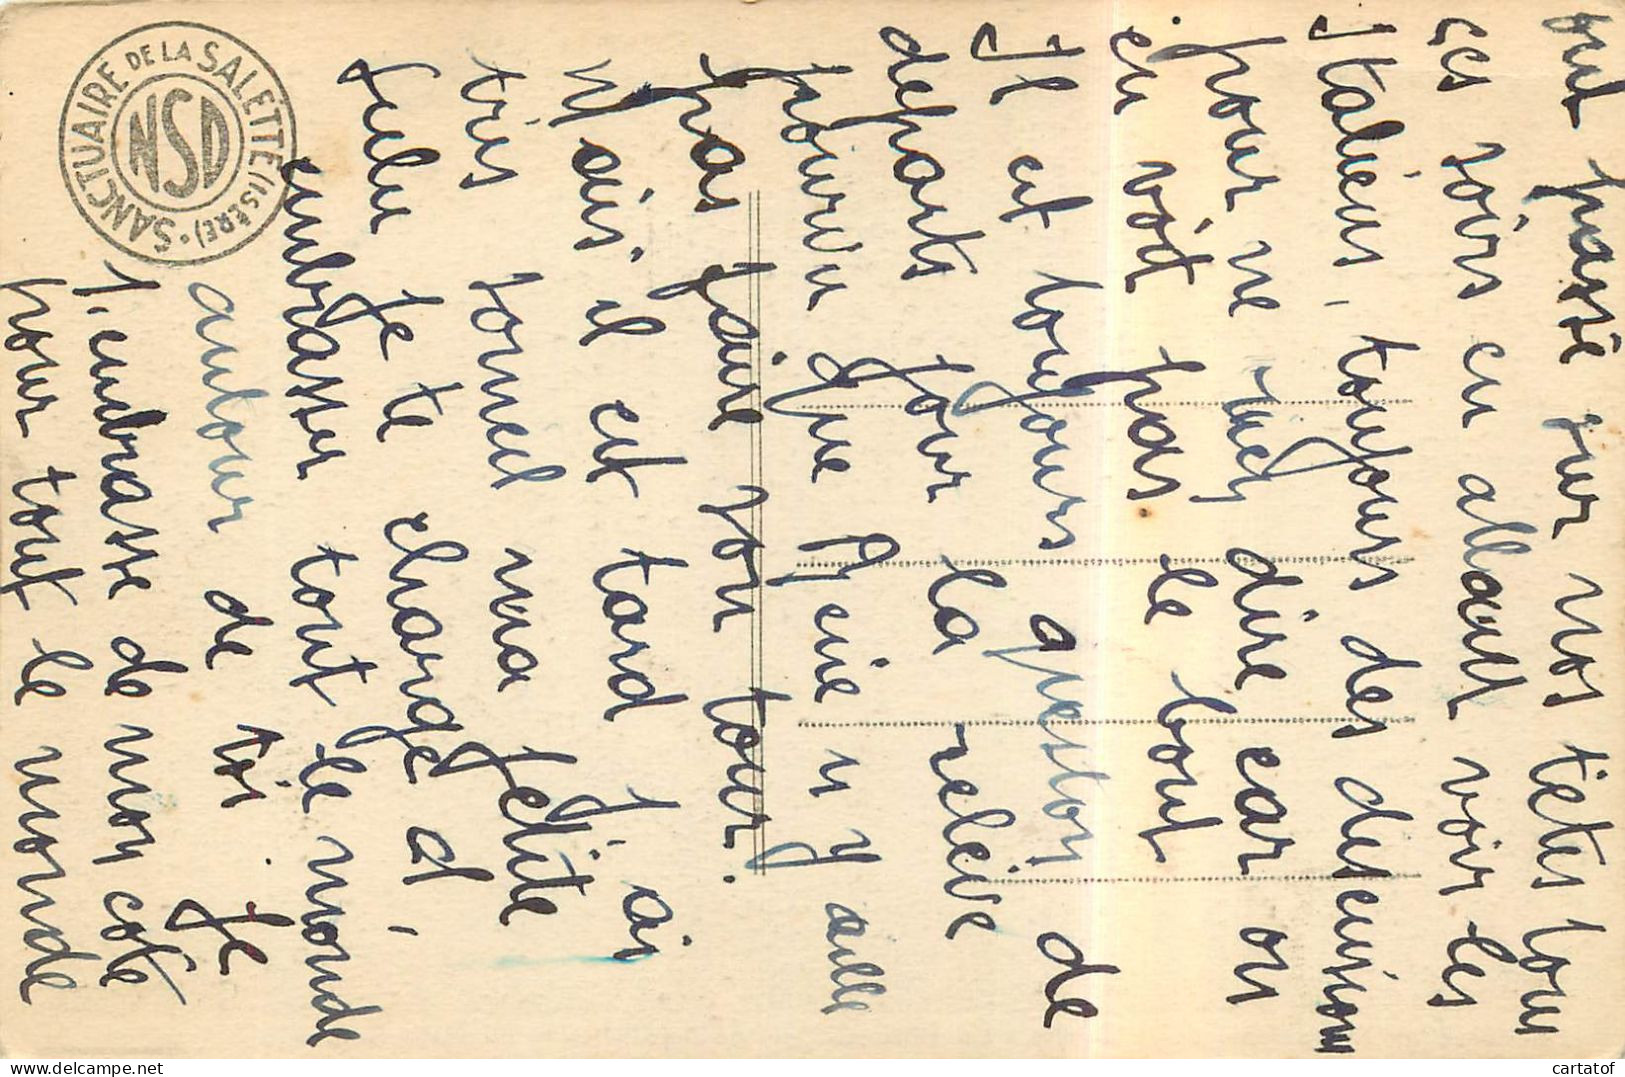 ont passé sur nos têtes tous
ces soirs en allant voir les
Italiens, toujours des discussions
pour ne rien dire car on
en voit pas le bout
Il est toujours question de
départs pour la relève
pourvu que René n y aille
pas faire son tour.
Mais il est tard j'ai
très someil ma petite
Lulu je te charge d'
embrasser tout le monde
autour de toi je
t'embrasse de mon coté
pour tout le monde
SANCTUAIRE DE LA SALETTE (ISÈRE) •
NSD
cartatof